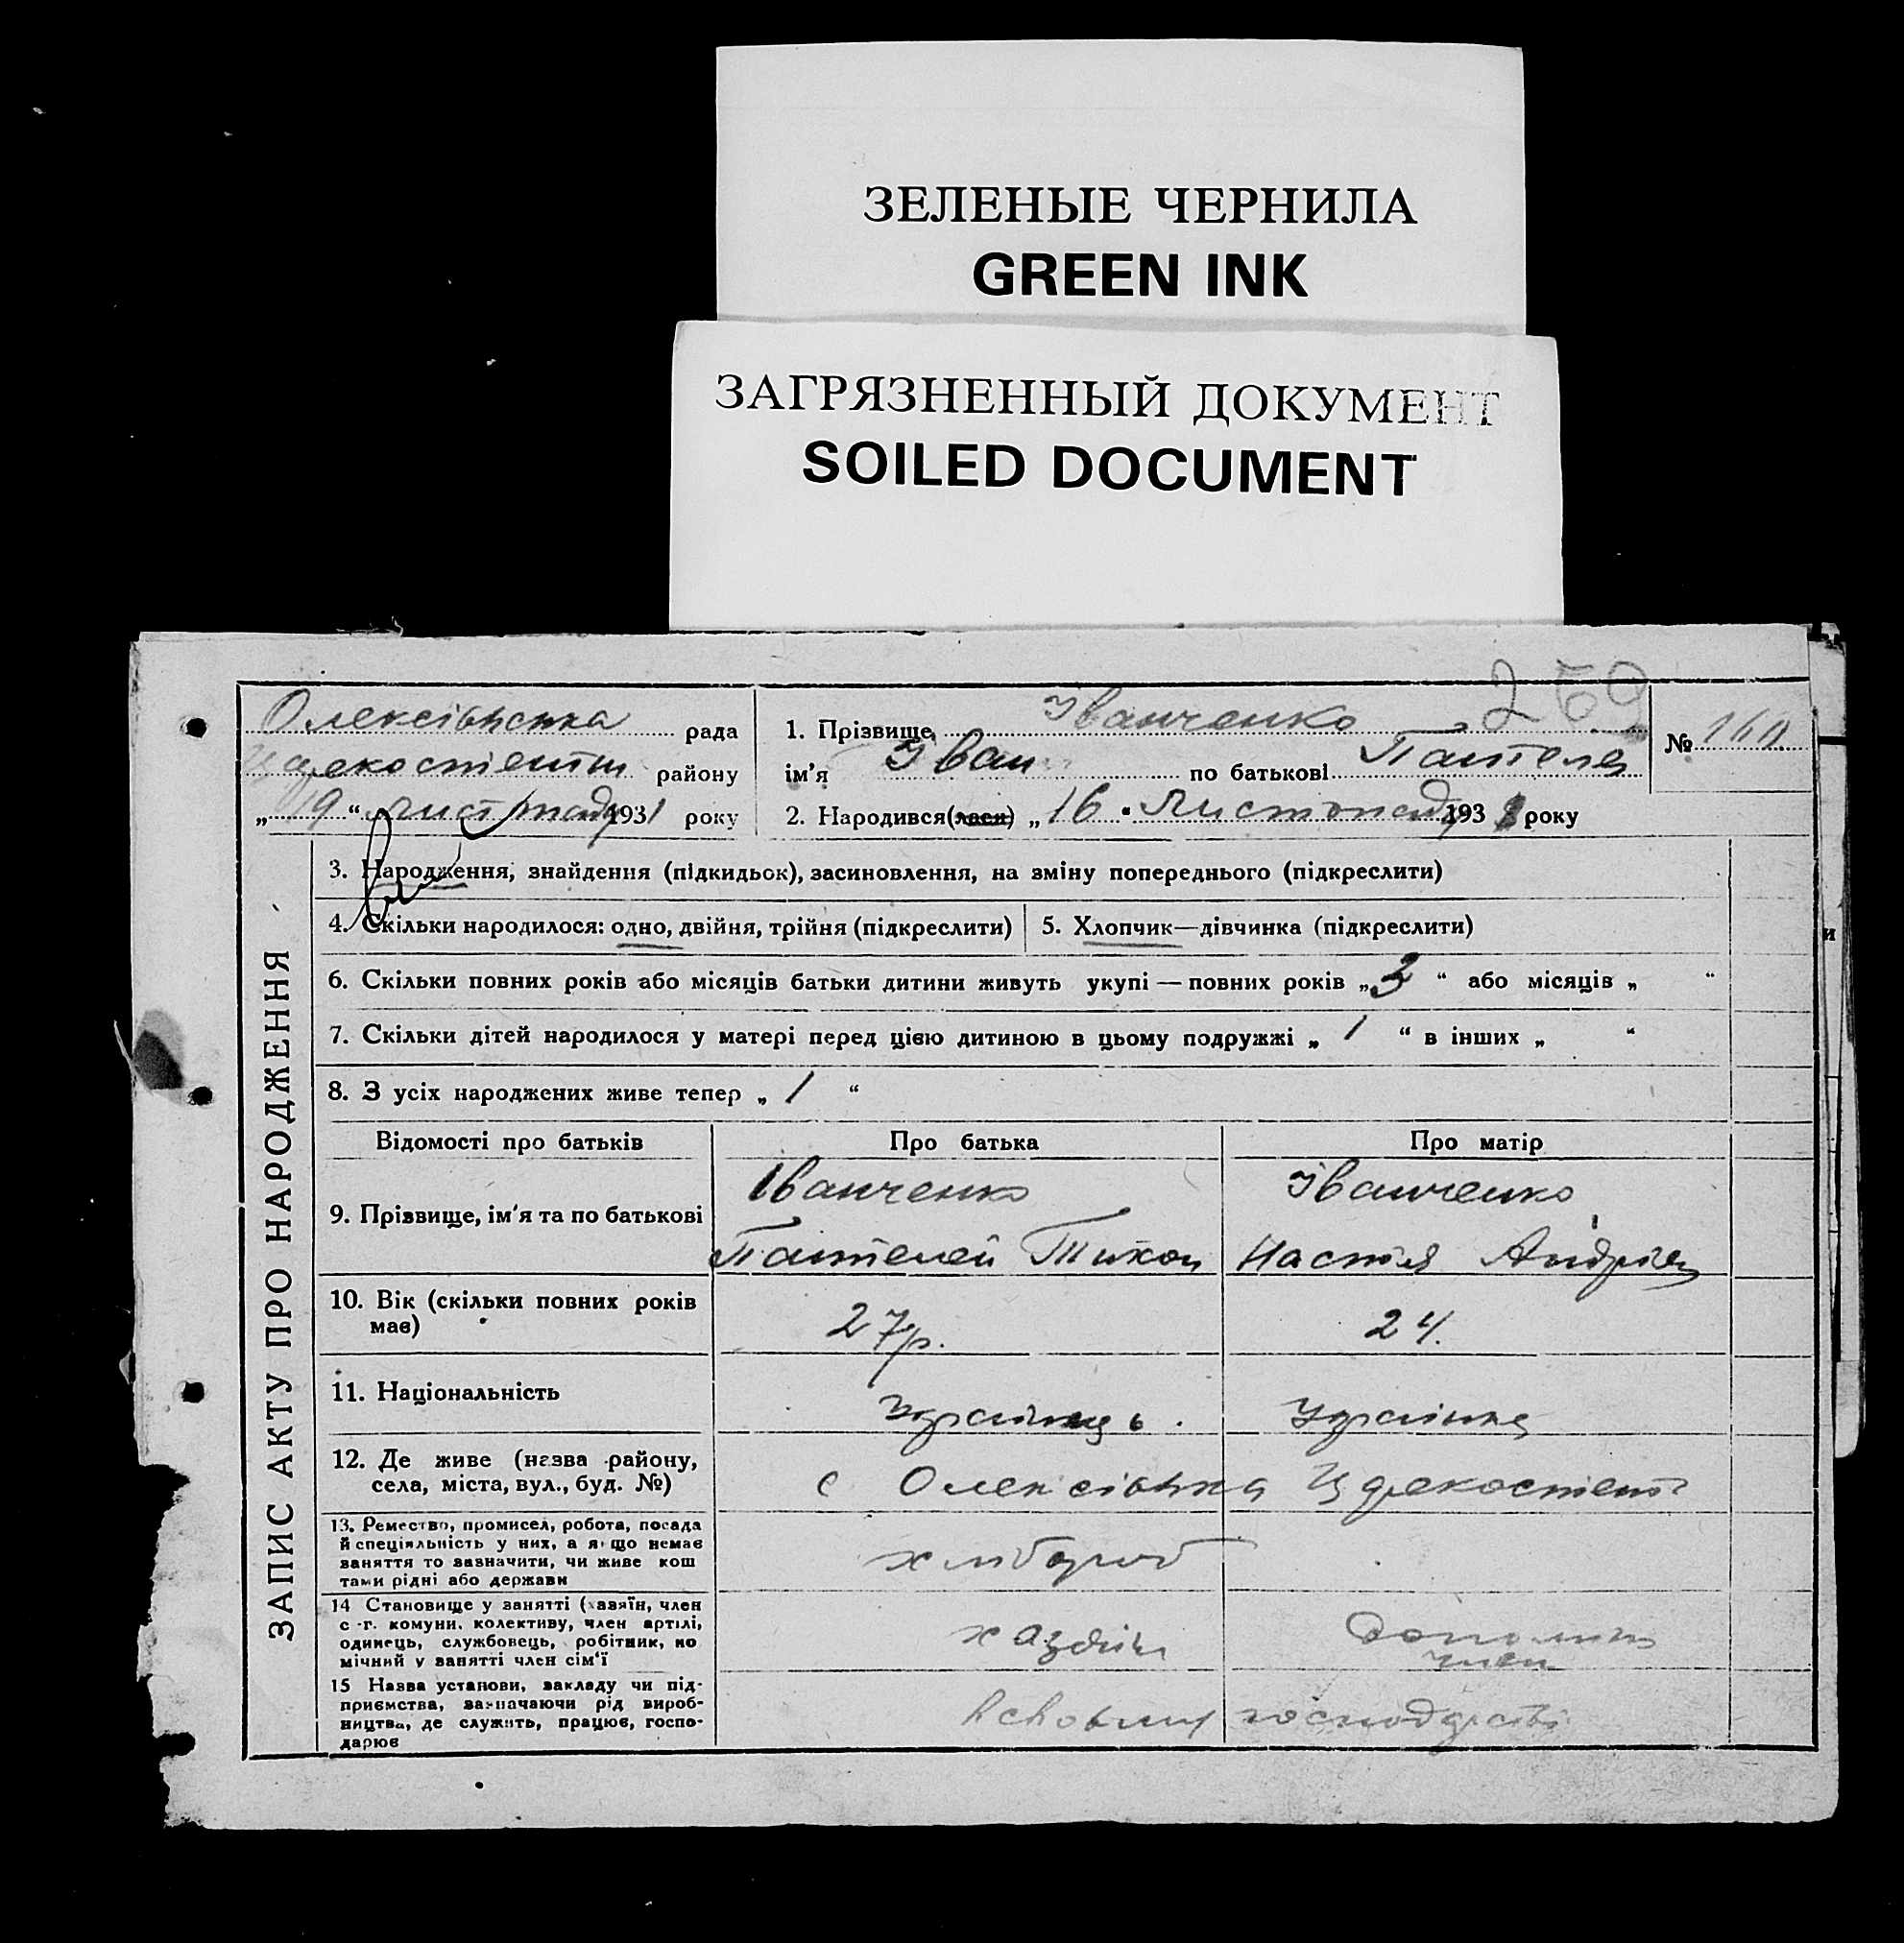 ЗЕЛЕНЫЕ ЧЕРНИЛА
GREEN INK
ЗАГРЯЗНЕННЫЙ ДОКУМЕНТ
SOILED DOCUMENT
260
Олексіівська рада
району
„19“ листопаду 1931 року
1. Прізвище Іванченко
ім'я Іван по батькові Пантеле
2. Народився(лася) „16“ Листопаду 193 року
№ 160
3. Народження, знайдення (підкидьок), засиновлення, на зміну попереднього (підкреслити)
4. Скільки народилося: одно, двійня, трійня (підкреслити)
5. Хлопчик—дівчинка (підкреслити)
6. Скільки повних років або місяців батьки дитини живуть укупі — повних років „3“ або місяців „ “
7. Скільки дітей народилося у матері перед цією дитиною в цьому подружжі „1“ в інших „ “
8. З усіх народжених живе тепер „1“
ЗАПИС АКТУ ПРО НАРОДЖЕННЯ
Відомості про батьків Про батька Про матір
9. Прізвище, ім'я та по батькові
Іванченко
Пантелей Тихон
Іванченко
Настя Андрієв
10. Вік (скільки повних років
має)
27р.
24.
11. Національність
Українець.
Українка
12. Де живе (назва району,
села, міста, вул., буд. №)
с Олексіівка
13. Ремество, промисел, робота, посада
й спеціяльність у них, а якщо немає
заняття то зазначити, чи живе кош
тами рідні або держави
хлібороб
14 Становище у занятті (хазяїн, член
с.-г. комуни, колективу, член артілі,
одинець, службовець, робітник, по
мічний у занятті член сім'ї
хазяін
член
15 Назва установи, закладу чи під-
приємства, зазначаючи рід вироб-
ництва, де служить, працює, госпо-
дарює
господарстві
и